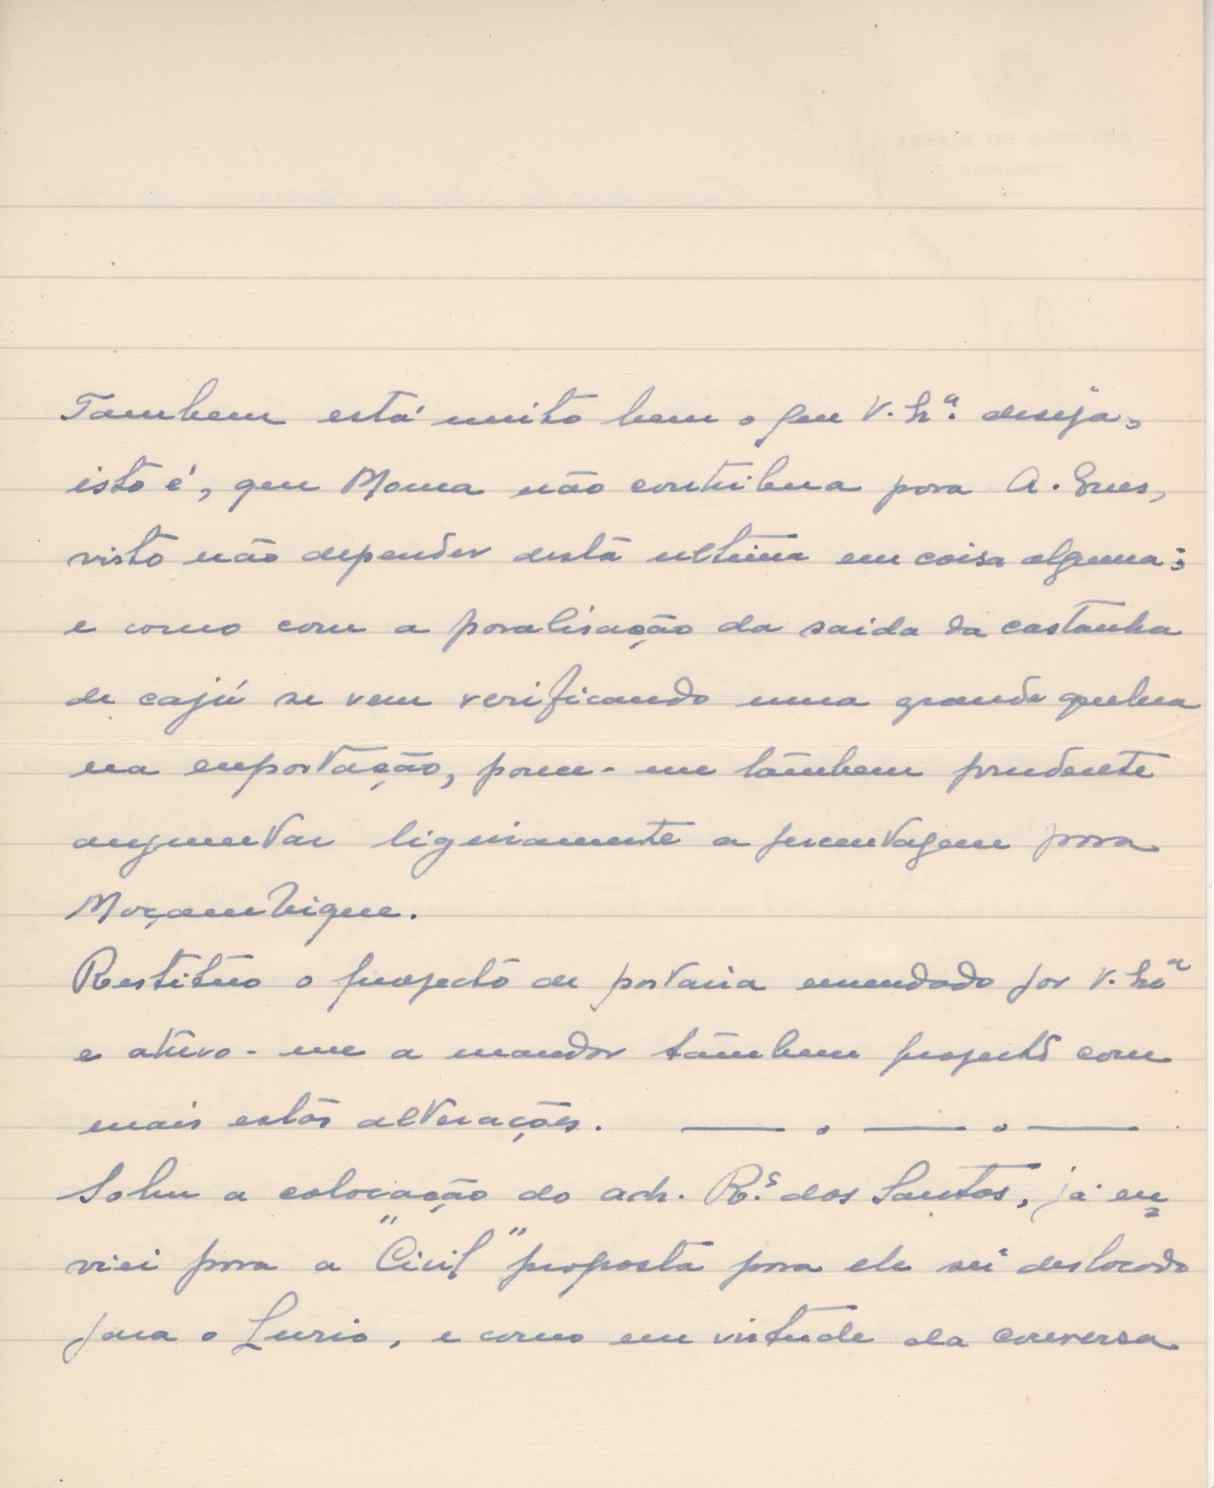 Tambem está muito bem o que V. Sr.ª deseja,
isto é, que Moma não contribua para A. Enes,
visto não depender desta ultima em coisa alguma;
e como com a paralisação da saida da castanha
de cajú se vem verificando uma grande quebra
na exportação, parece-me tambem prudente
augmentar ligeiramente a percentagem para
Moçambique.
Restituo o projecto de portaria emendado por V. Srª
e atrevo-me a mandar tambem projecto com
mais estas alterações. — . — . —
Sobre a colocação do adm. R.s dos Santos, já en=
viei para a "Civil" proposta para ele ser deslocado
para o Lurio, e como em virtude da conversa